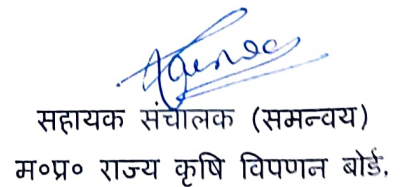 सहायक संचालक (समन्वय)
म०प्र० राज्य कृषि विपणन बोर्ड,